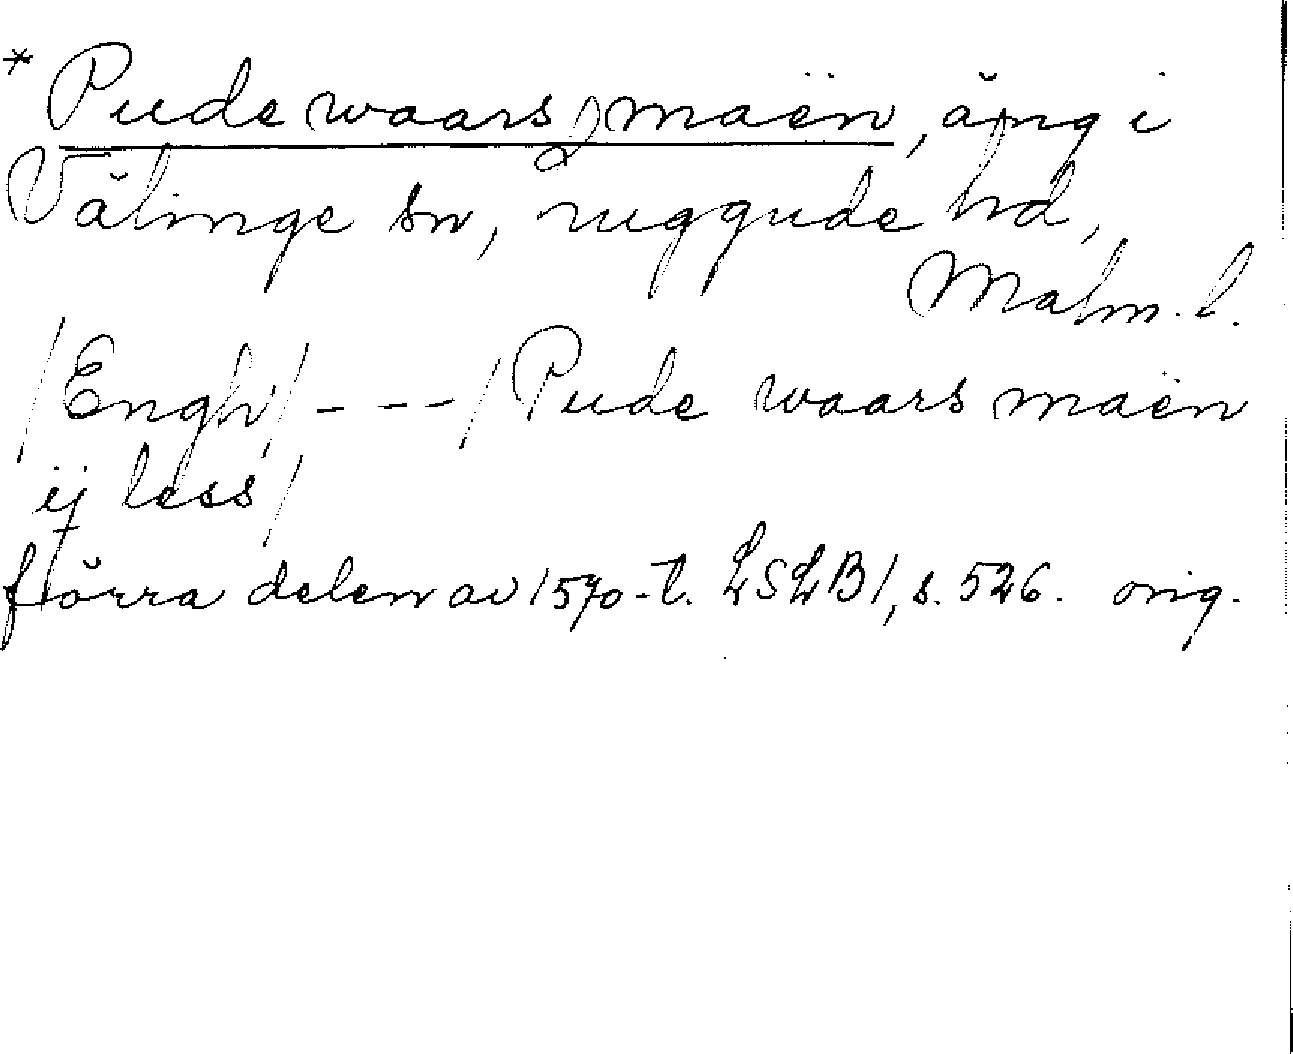 * Pude waars maën, äng i
Välinge sn, Luggude hd,
Malm. l.
/Engh/ - - - / Pude waars maën
ij less/
förra delen av 1570-t. LSLB1, s. 526. orig.